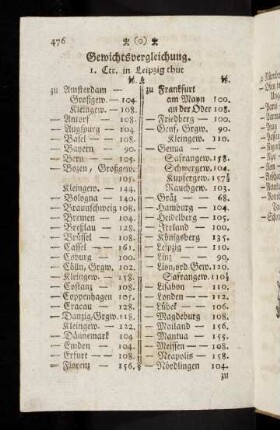 476 (o)
Gewichtsvergleichung.
1. Ctr. in Leipzig thut
℔.
zu Amsterdam —
Großgew. — 104.
Kleingew. — 108.
— Antorf — 108.
— Augspurg — 104.
— Basel — 108.
— Bayern — 90.
— Bern — 105.
— Bozen, Großgew.
105.
Kleingew. — 144.
— Bologna — 140.
— Braunschweig 108.
— Bremen — 104.
— Breßlau — 128.
— Brüssel — 108.
— Cassel — 161.
— Coburg — 100.
— Cölln, Grgw. 100.
— Kleingew. — 158.
— Costanz — 108.
— Coppenhagen 105.
— Cracau — 128.
— Danzig, Grgw. 118.
— Kleingew. — 122.
— Dännemark 104.
— Emden — 104.
— Erfurt — 108.
— Florenz — 156.
℔.
zu Frankfurt
am Mayn 100.
an der Oder 108.
— Friedberg — 100.
— Genf, Grgw. 90.
Kleingew. 110.
— Genua —
Safrangew. 158.
Schwergew. 104.
Kupfergew. 157½
Rauchgew. 103.
— Grätz — 68.
— Hamburg — 104.
— Heidelberg — 105.
— Irrland — 100.
— Königsberg 135.
— Leipzig — 110.
— Linz — 90.
— Lion, ord. Gew. 120.
Safrangew. 110½
— Lisabon — 110.
— Londen — 112.
— Lübek — 106.
— Magdeburg 108.
— Mailand — 156.
— Mantua — 155.
— Meissen — 108.
— Neapolis — 158.
— Nördlingen 104.
zu